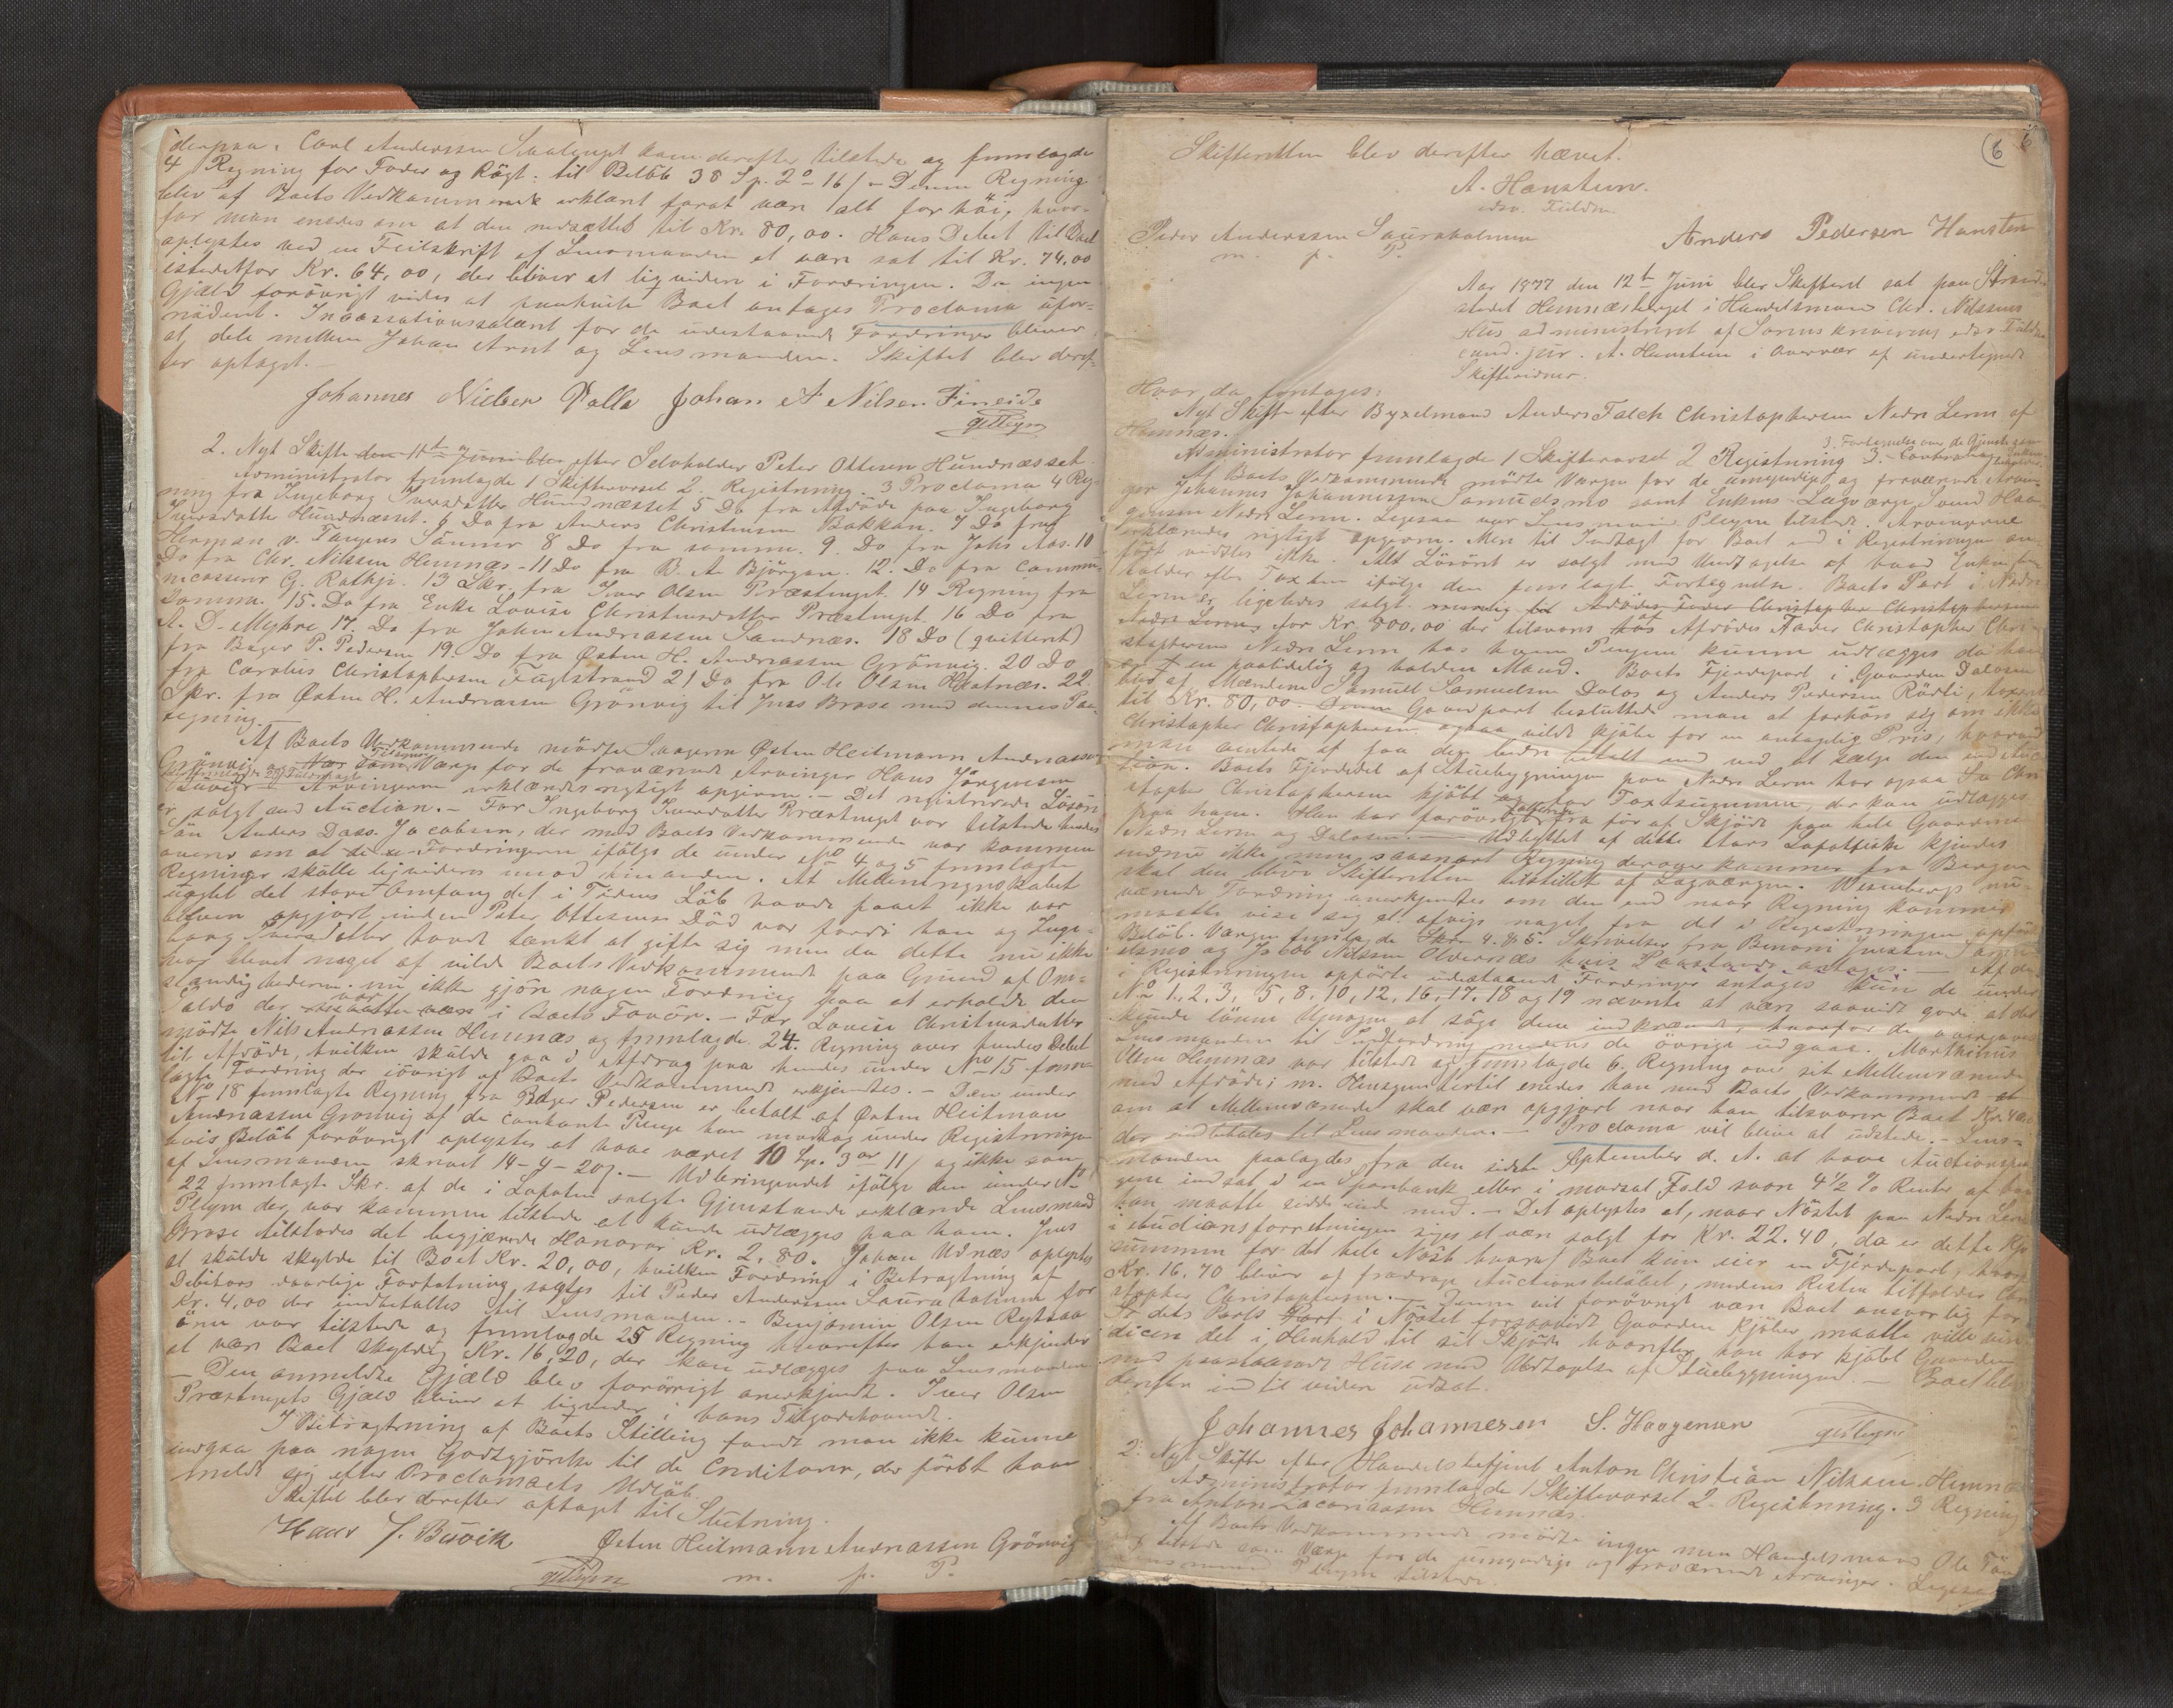 derpaa. Carl Anderssen kom derefter tilstede og fremlagde
4 Regning for Foder og Rögt. til Belöb 38 Sp. 2 o 16 / - Denne Regning
blev af Boets Vedkommende erklært forat være alt for höi, hvor-
for man enedes om at den nedsættes til Kr. 80,00. Hans Debet til Boet
oplystes ved en Feilskrift af Lensmanden at være sat til Kr. 74,00
istedetfor Kr. 64,00, der bliver at liqvidere i Fordringen. Da ingen
Gjæld forövrigt vides at paahvile Boet antages Proclama ufor-
nödent. Incassationssalæret for de udestaaende Fordringer bliver
at dele mellem Johan Arnt og Lensmanden. Skiftet blev deref-
ter optaget.-
Johannes Nielsen Valla Johan A Nilsen Fineide
2. Nyt Skifte den 11te Juni blev efter Selveholder Peter Ottesen Hundnæsset.
Administrator fremlagde 1 Skiftevarsel 2. Registrering 3 Proclama 4 Reg-
ning fra Ingeborg Iversdatter Hundnæsset 5 Do fra Afdöde paa Ingeborg
Iversdatter Hundnæsset. 6 Do fra Anders Christensen Bakken. 7 Do fra
Herman v. Tangens Sönner 8 Do fra samme. 9. Do fra Johs Aas. 10
Do fra Chr. Nilssen Hemnæs - 11 Do fra B. A. Björgan. 12. Do fra Commu-
necasserer G. Rathje. 13 Skr. fra Iver Olsen Præstenget. 14 Regning fra
Samme. 15. Do fra Enke Lovise Christensdatter Præstenget. 16 Do fra
A. D. Myhre 17. Do fra Johan Andreassen Sandnæs. 18 Do (qvitteret)
fra Bager P. Pedersen 19. Do fra Østen H. Andreassen Grönvig. 20 Do
fra Carolus Christophersen Fuglstrand 21 Do fra Ole Olsen. 22.
Skr. fra Østen H. Andreassen Grönvig til Jens Brose med dennes Paa-
tegning.-
Af Boets Vedkommende mödte Svogeren Østen Heitmann Andreassen
Grönvig og som Værge for de fraværende Arvinger Hans Jörgensen
Arvingerne erklæredes rigtigt opgivne. - Det registrerede Lösöre
er solgt ved Auction. - For Ingeborg Iversdatter Præstenget var tilstede hendes
Sön Anders Dass Jacobsen, der med Boets Vedkommende var kommen
overens om at de Fordringerne ifölge de under No 4 og 5 fremlagte
Regninger skulle liqvideres imod hinanden. At Mellemregnskabet
uagtet det store Omfang det i Tidens Löb havde faaet ikke var
bleven opgjort inden Peter Ottesens Död var fordi han og Inge-
borg Iversdatter havde tænkt at gifte sig men da dette nu ikke
har blevet noget af vilde Boets Vedkommende paa Grund af Om-
stændighederne nu ikke gjöre nogen Fordring paa at erholde den
Saldo der var i Boets Favör. - For Lovise Christensdatter
mödte Nils Andreassen Hemnæs og fremlagde 24. Regning over hendes Debet
til Afdöde, hvilken skulde gaa i Afdrag paa hendes under No 15 frem-
lagte Fordring der iövrigt af Boets Vedkommende erkjendtes. - Den under
No 18 fremlagte Regning fra Bager Pedersen er betalt af Østen Heitman
Andreassen Grönvig af de contante Penge han modtog under Registreringen
hvis Belöb forövrigt oplystes at have været 10 Sp. 3 ort 11 / og ikke som
af Lensmanden skrevet 14 - 4 - 20 /. - Udbringendet ifölge den under No
22 fremlagte Skr. af de i Lofoten solgte Gjenstande erklærede Lensmand
Plejm der var kommen tilstede at kunne udlægges paa ham. Jens
Brose tilstodes det begjærede Honorar Kr. 2,80. Johan Udnæs oplystes
at skulde skylde til Boet Kr. 20,00, hvilken Fordring i Betragtning af
Debitors daarlige Forfatning solgtes til Peder Anderssen Sauraholmen for
Kr. 4,00 der indbetaltes til Lensmanden. - Benjamin Olsen
var tilstede og fremlagde 25 Regning hvorefter han erkjender
at være Boet skyldig Kr. 16,20, der kan udlægges paa Lensmanden
- Den anmeldte Gjæld blev forövrigt anerkjendt. Iver Olsen
Præstengets Gjæld bliver at liqvidere i hans Tilgodehavende.
I Betragtning af Boets Stilling fandt man ikke kunne
indgaa paa nogen Godtgjörelse til de Creditorer, der först have
meldt sig efter Proclamaets Udlöb.
Skiftet blev derefter optaget til Slutning.
Hans J. Buvik Østen Heitmann Andreassen Grönvig
m. p. P.
6 6
Skifteretten blev derefter hævet.
A. Hansteen.
edsv. Fuldm
Peder Anderssen Sauraholmen Anders Pedersen Hansten
m. p. P.
Aar 1877 den 12te Juni blev Skifteret sat paa Strand-
stedet Hemnæsberget i Handelsmand Chr. Nilssens
Hus administreret af Sorenskriverens edsv. Fuldm
cand. jur. A. Hansteen i Overvær af undertegnede
Skiftevidner.
Hvor da foretages:
Nyt Skifte efter Byxelmand Anders Falch Christophersen Nedre Leren af
Hemnæs.
Administrator fremlagde 1 Skiftevarsel 2 Registrering 3.
Af Boets Vedkommende mödte Værgen for de umyndige og fraværende Arvin-
ger Johannes Johannessen Samuelsmo samt Enkens Lagværge Svend Haa-
gensen Nedre Leren. Ligesaa var Lensmand Plejm tilstede. Arvingerne
erklæredes rigtigt opgivne. Mere til Indtægt for Boet end i Registreringen an-
fört vidstes ikke. Alt Lösöret er solgt med Undtagelse af hvad Enken be-
holder efter Taxten ifölge den fremlagte Fortegnelse. Boets Part i Nedre
Leren er ligeledes solgt Afdödes Fader Christopher Christophersen
Nedre Leren, for Kr. 800,00 der tilsvares af Afdödes Fader Christopher Chri-
stophersen Nedre Leren hos hvem Pengene kunne udlægges da han
er en paalidelig og holden Mand. Boets Fjerdepart i Gaarden Dalosen
blev af Mændene Samuel Samuelsen Dalos og Anders Pedersen Rödli, taxeret
til Kr. 80,00. Denne Gaardpart besluttede man at forhöre sig om ikke
Christopher Christophersen ogsaa vilde kjöbe for en antagelig Pris, hvorved
man ventede at faa den bedre betalt end ved at sælge den ved Auc-
tion. Boets Fjerdedel af Stuebygningen paa Nedre Leren har ogsaa Chri-
stopher Christophersen kjöbt for Taxtsummen, der kan udlægges
paa ham. Han har forövrigt fra för af Skjöde paa hele Gaardene
Nedre Leren og Dalosen. - Udbyttet af dette Aars Lofotfiske kjendes
endnu ikke, men saasnart Regning derover kommer fra Bergen
skal den blive Skifteretten tilstillet af Lagværgen. Wesenbergs nu-
værende Fordring anerkjendtes om den end naar Regning kommer
maatte vise sig at afvige noget fra det i Registreringen opförte
Belöb. Værgen fremlagde Skr. 4. & 5. Skrivelser fra Benoni Jensen
og Jakob Nilssen Oldernæs hvis Paastande antages. - Af de
i Registreringen opförte udestaaende Fordringer antages kun de under
No 1., 2, 3, 5, 8, 10, 12, 16, 17, 18 og 19 nævnte at være saavidt gode, at det
kunde lönne Umagen at söge dem indkrævet, hvorfor de overgaves
Lensmanden til Indfordring medens de övrige udgaar. Marthinus
Olsen Hemnæs var tilstede og fremlagde 6. Regning over sit Mellemværende
med Afdöde; m. Hensyn hertil enedes han med Boets Vedkommende
om at Mellemværende skal være opgjort naar han tilsvarer Boet Kr. 4,00
der indbetales til Lensmanden. - Proclama vil blive at udstede. - Lens-
manden paalagdes fra den sidste September d. A. at have Auctionspen-
gene indsat i en Sparebank eller i modsat Fald svare 4½ % Renter af hvad
han maatte sidde inde med. - Det oplystes at, naar Nöstet paa Nedre Leren
i Auctionsforretningen siges at være solgt for Kr. 22.40, da er dette Kjöbe-
summen for det hele Nöst hvoraf Boet kun eier en Fjerdepart, hvorfor
Kr. 16,70 bliver at fradrage Auctionsbelöbet, medens Resten tilfalder Chri-
stopher Christophersen. - Denne vil forövrigt være Boet ansvarlig for
dets Part i Nöstet forsaavidt Gaardens Kjöber maatte ville vin-
dicere det i Henhold til sit Skjöde hvorefter han har kjöbt Gaarden
med paastaaende Huse med Undtagelse af Stuebygningen. - Boet blev
derefter indtil videre udsat.
Johannes Johannesen S. Haagensen
2. Nyt Skifte efter Handelsbetjent Anton Christian Nilssen Hemnæs
Administrator fremlagde 1 Skiftevarsel 2. Registrering. 3 Regning
fra Anton Zacariassen Hemnæs.
Af Boets Vedkommende mödte ingen men Handelsmand Ole
var tilstede som Værge for de umyndige og fraværende Arvinger. Ligesaa
Lensmand Plejm tilstede